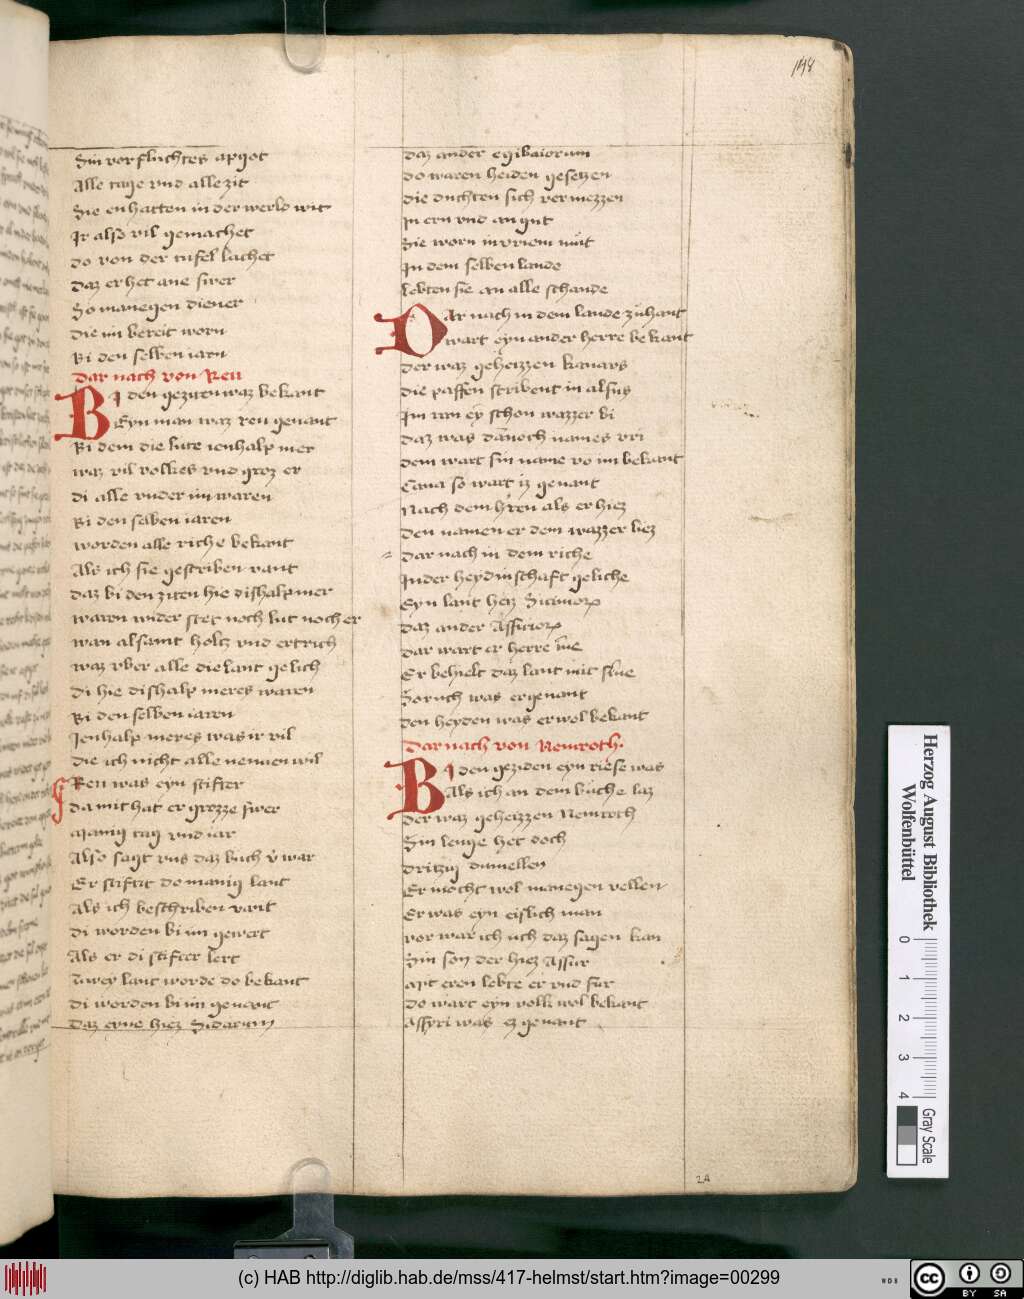 148
Sin vorfluchtes apgot
Alle tage vnd alle zit
Sie enhatten in der werld wit
Ir also vil gemachet
do von der tufel lachet
daz er het ane swer
So manegen diener
die im bereit worn
Bi den selben iarn
dar nach von Reu
BI den geziten waz bekant
Eyn man waz reu genant
Bi dem die lute ienhalp mer
waz vil volkes vnd groz er
di alle vnder im waren
Bi den selben iaren
worden alle riche bekant
Als ich sie gescriben vant
daz bi den ziten hie dishalp mer
warn wider stet noch lut noch er
wan alsamt holtz vnd ertrich
waz vber alle die lant gelich
di hie dishalp meres waren
Bi den selben iaren
Ienhalp meres was ir vil
die ich nicht alle nennen wil
Reu was eyn stifter
da mit hat er grozze swer
Manig tag vnd iar
Also sagt vns daz buch v war
Er stiftit do manig lant
Als ich beschriben vant
di worden bi im gewert
Als er di stifter lert
Zwey lant worde do bekant
di worden bi im genant
daz eyne hiez Sidarum
daz ander egibaiorum
do waren heiden gesetzen
die duchten sich vermezzen
In ern vnd an gut
Sie worn in vriem mut
In dem selben lande
lebten sie an alle schande
DAr nach in dem lande zuhant
wart eyn ander herre bekant
der waz geheizzen kanars
die paffen scribent in alsus
Im ran ey schon wazzer bi
daz was dannoch names vri
dem wart sin name vo im bekant
Cana so wart iz genant
Nach dem hren als er hiez
den namen er dem wazzer liez
dar nach in dem riche
In der heydinschaft geliche
Eyn lant hiez
daz ander
dar wart er herre
Er behielt daz lant mit
Soruch was er genant
den heyden was er wol bekant
Dar nach von Nemroth.
BI den geziden eyn riese was
Als ich an dem buche laz
der waz geheizzen Nemroth
Sin lenge het doch
dritzig dumellen
Er mocht wol manegen vellen
Er was eyn eislich man
vor war ich uch daz sagen kan
Sin son der hiez Assur
Mit eren lebte er vnd fur
do wart eyn volk wol bekant
Assyri was ez genant
Herzog August Bibliothek
Wolfenbüttel
0 1 2 3 4
Gray Scale
(c) HAB http://diglib.hab.de/mss/417-helmst/start.htm?image=00299
WDB
cc BY SA